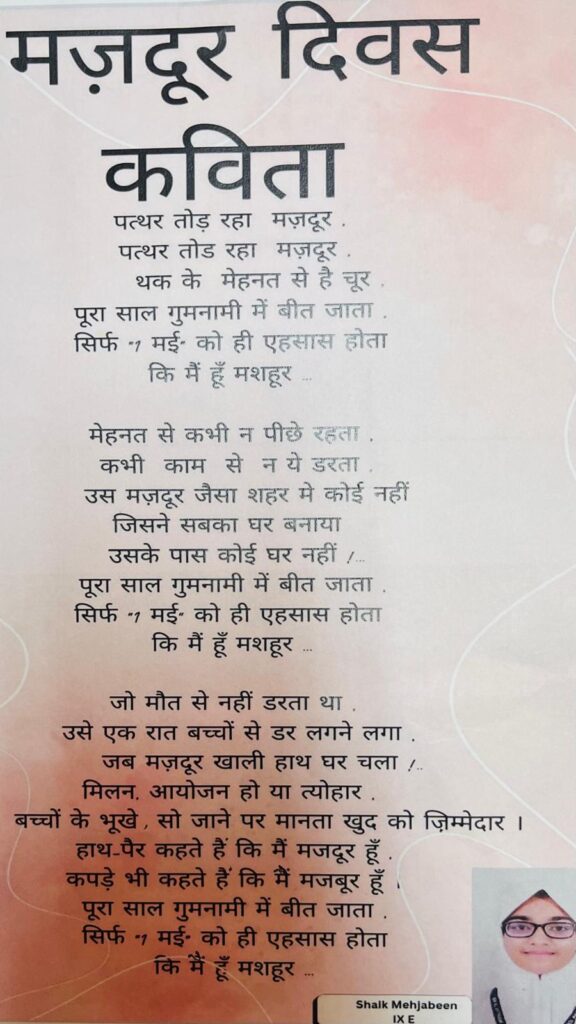 मज़दूर दिवस
कविता
पत्थर तोड़ रहा मज़दूर .
पत्थर तोड रहा मज़दूर .
थक के मेहनत से है चूर .
पूरा साल गुमनामी में बीत जाता .
सिर्फ "1 मई" को ही एहसास होता
कि मैं हूँ मशहूर ...
मेहनत से कभी न पीछे रहता .
कभी काम से न ये डरता .
उस मज़दूर जैसा शहर मे कोई नहीं
जिसने सबका घर बनाया
उसके पास कोई घर नहीं !...
पूरा साल गुमनामी में बीत जाता .
सिर्फ "1 मई" को ही एहसास होता
कि मैं हूँ मशहूर ...
जो मौत से नहीं डरता था .
उसे एक रात बच्चों से डर लगने लगा .
जब मज़दूर खाली हाथ घर चला !...
मिलन, आयोजन हो या त्योहार .
बच्चों के भूखे , सो जाने पर मानता खुद को ज़िम्मेदार ।
हाथ-पैर कहते हैं कि मैं मजदूर हूँ .
कपड़े भी कहते हैं कि मैं मजबूर हूँ ।
पूरा साल गुमनामी में बीत जाता .
सिर्फ "1 मई" को ही एहसास होता
कि मैं हूँ मशहूर ...
Shaik Mehjabeen
IX E